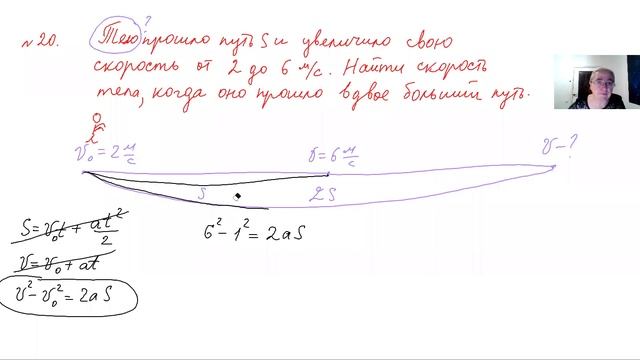 № 20. Тело прошло путь S и увеличило свою
скорость от 2 до 6 м/с. Найти скорость
тела, когда оно прошло вдвое больший путь.
?
υ₀ = 2 м/с υ = 6 м/с υ - ?
S 2S
S = υ₀t + at²/2
6² - 1² = 2aS
υ = υ₀ + at
υ² - υ₀² = 2aS